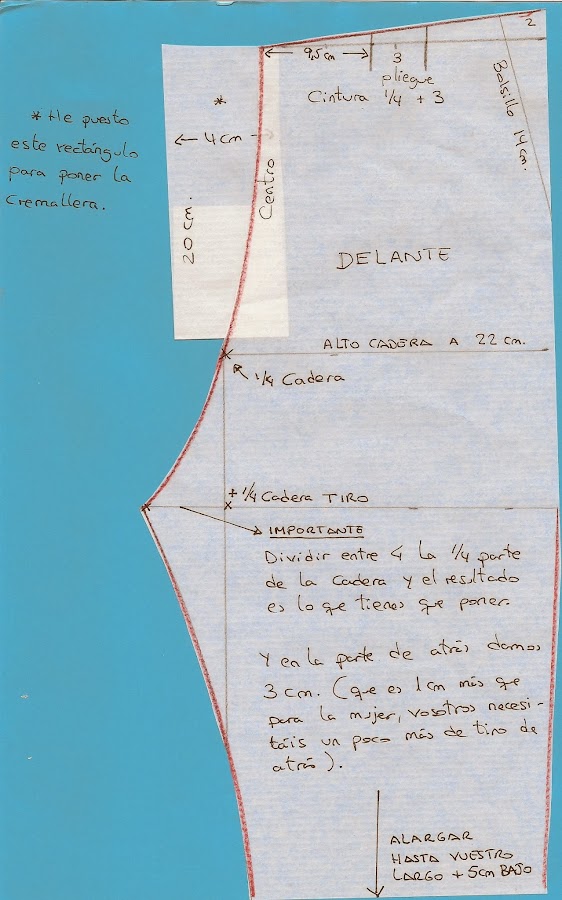 2
9,5 cm
3
pliegue
Cintura 1/4 + 3
Bolsillo 14 cm.
*
* He puesto
este rectángulo
para poner la
Cremallera.
4 cm
Centro
20 cm.
DELANTE
ALTO CADERA A 22 cm.
1/4 Cadera
+ 1/4 Cadera TIRO
IMPORTANTE
Dividir entre 4 la 1/4 parte
de la Cadera y el resultado
es lo que tienes que poner.
Y en la parte de atrás damos
3 cm. (que es 1 cm más que
para la mujer, vosotros necesi-
táis un poco más de tiro de
atrás).
ALARGAR
HASTA VUESTRO
LARGO + 5cm BAJO